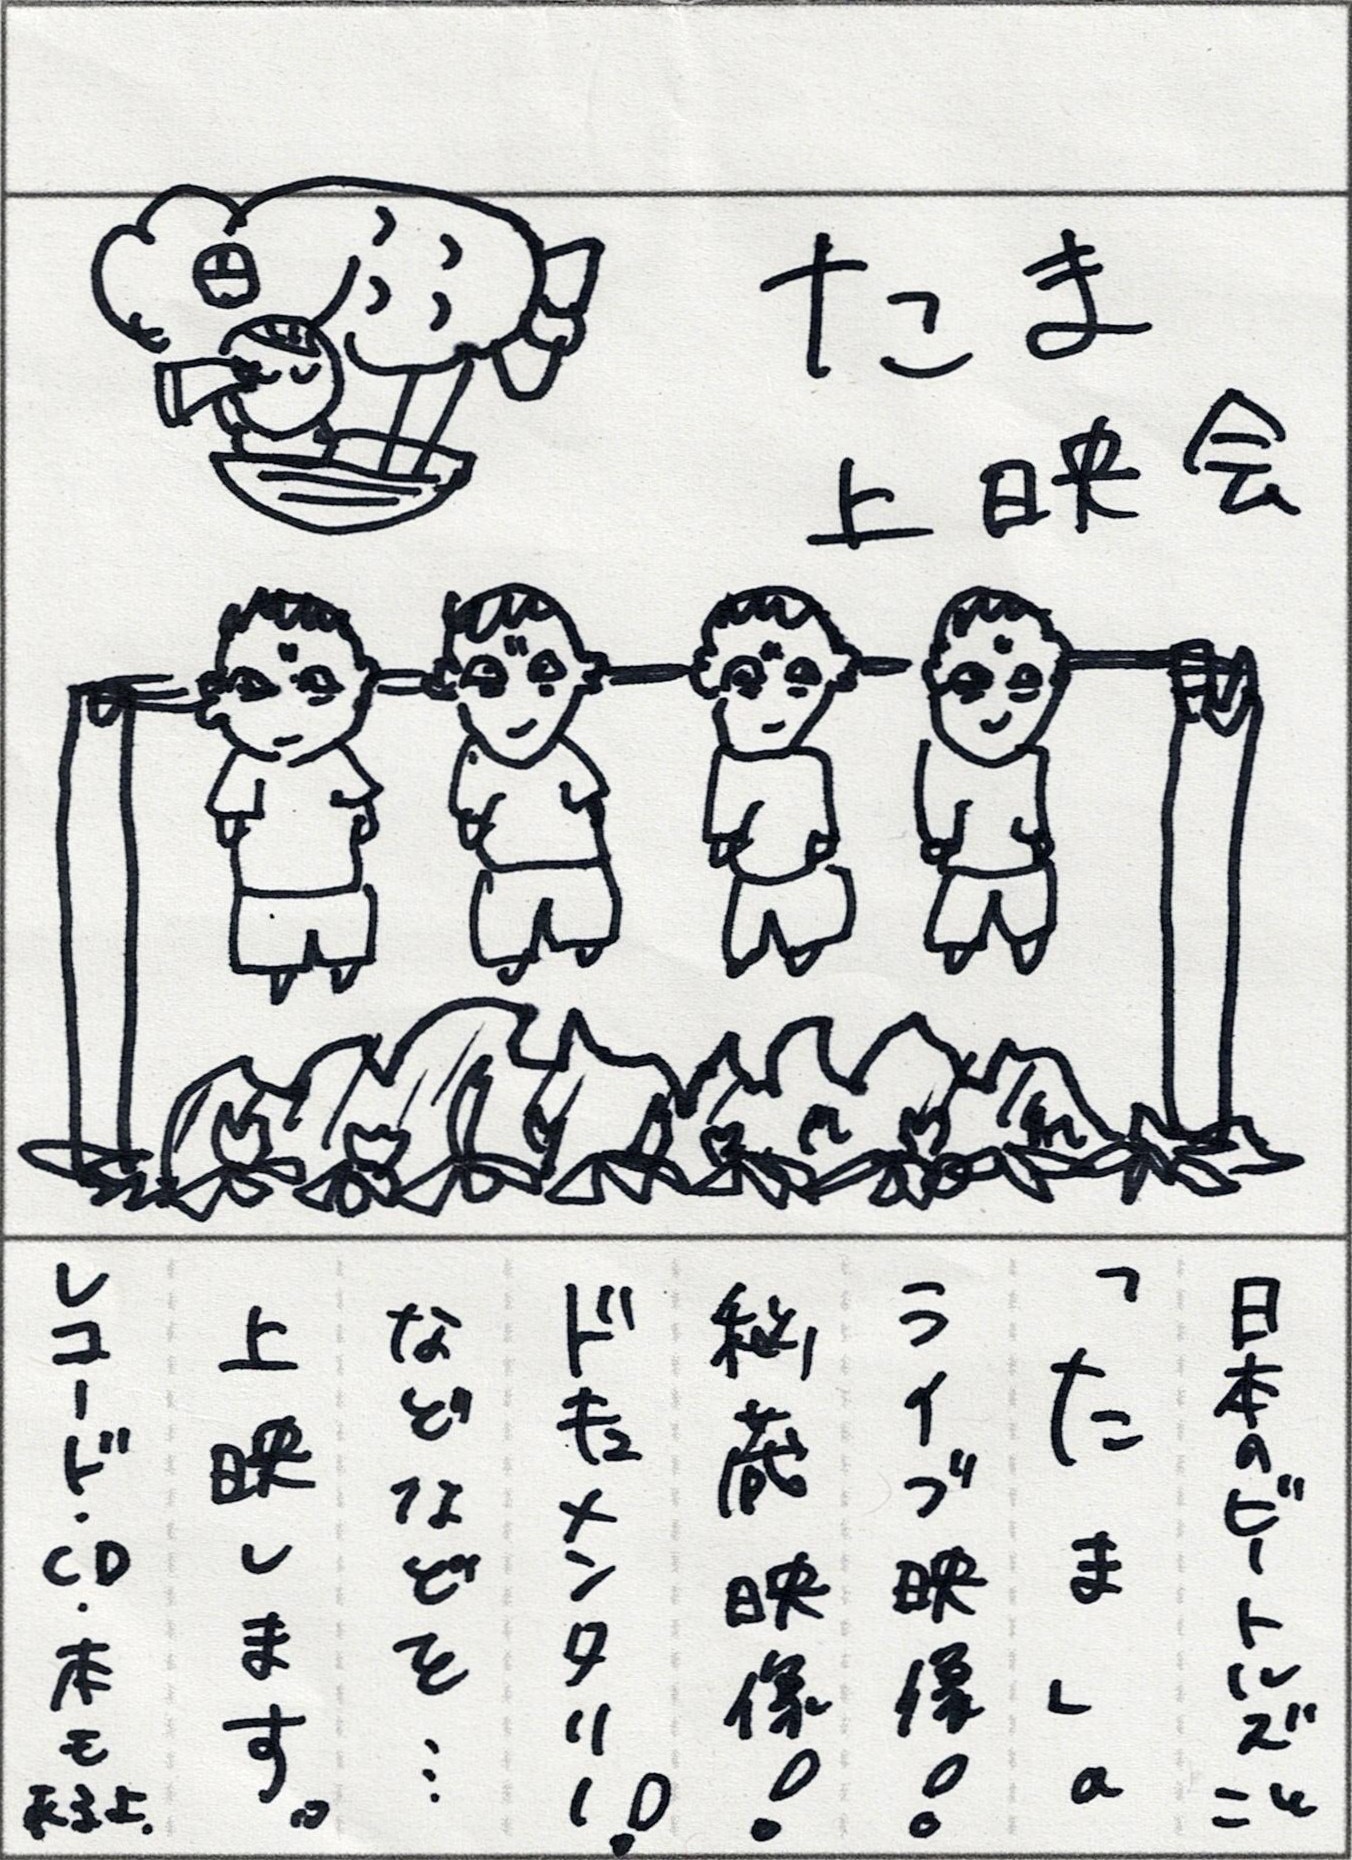 たま
上映会
日本のビートルズこと
「たま」の
ライブ映像!
秘蔵映像!
ドキュメンタリー!
などなどを…
上映します。
レコード・CD・本も